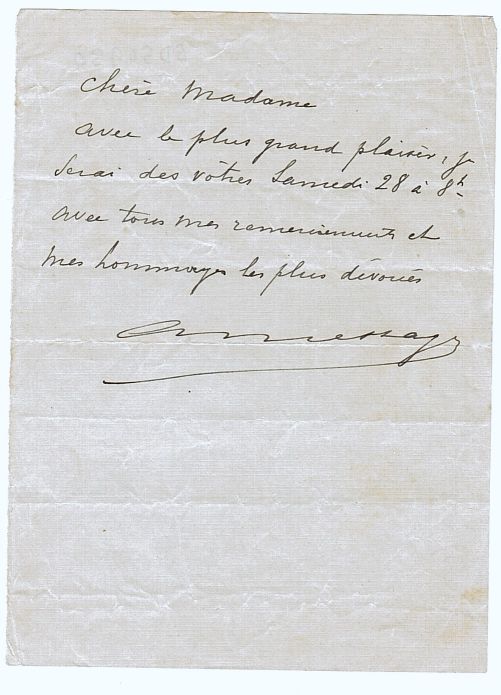 Chère Madame
avec le plus grand plaisir, je
serai des vôtres Samedi 28 à 8h
avec tous mes remerciements et
mes hommages les plus dévoués
A Messager